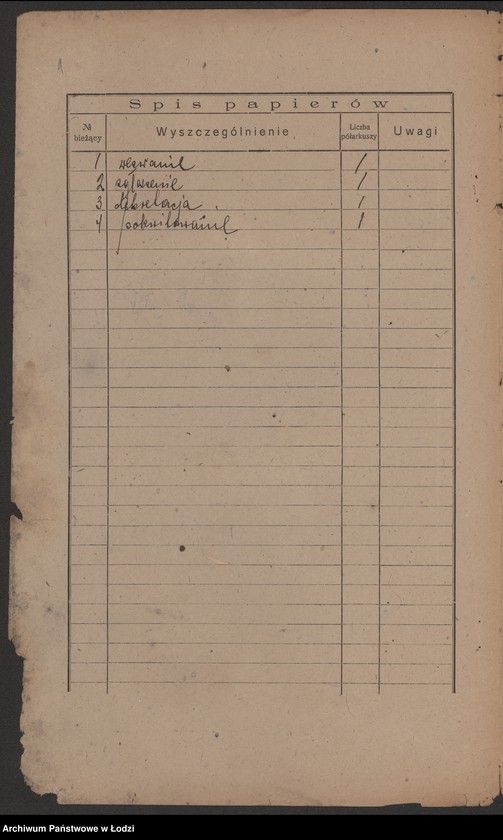 1
Spis papierów
№ bieżący Wyszczególnienie Liczba półarkuszy Uwagi
1 wezwanie 1
2 zgłoszenie 1
3 deklaracja 1
4 pokwitowanie 1
Archiwum Państwowe w Łodzi